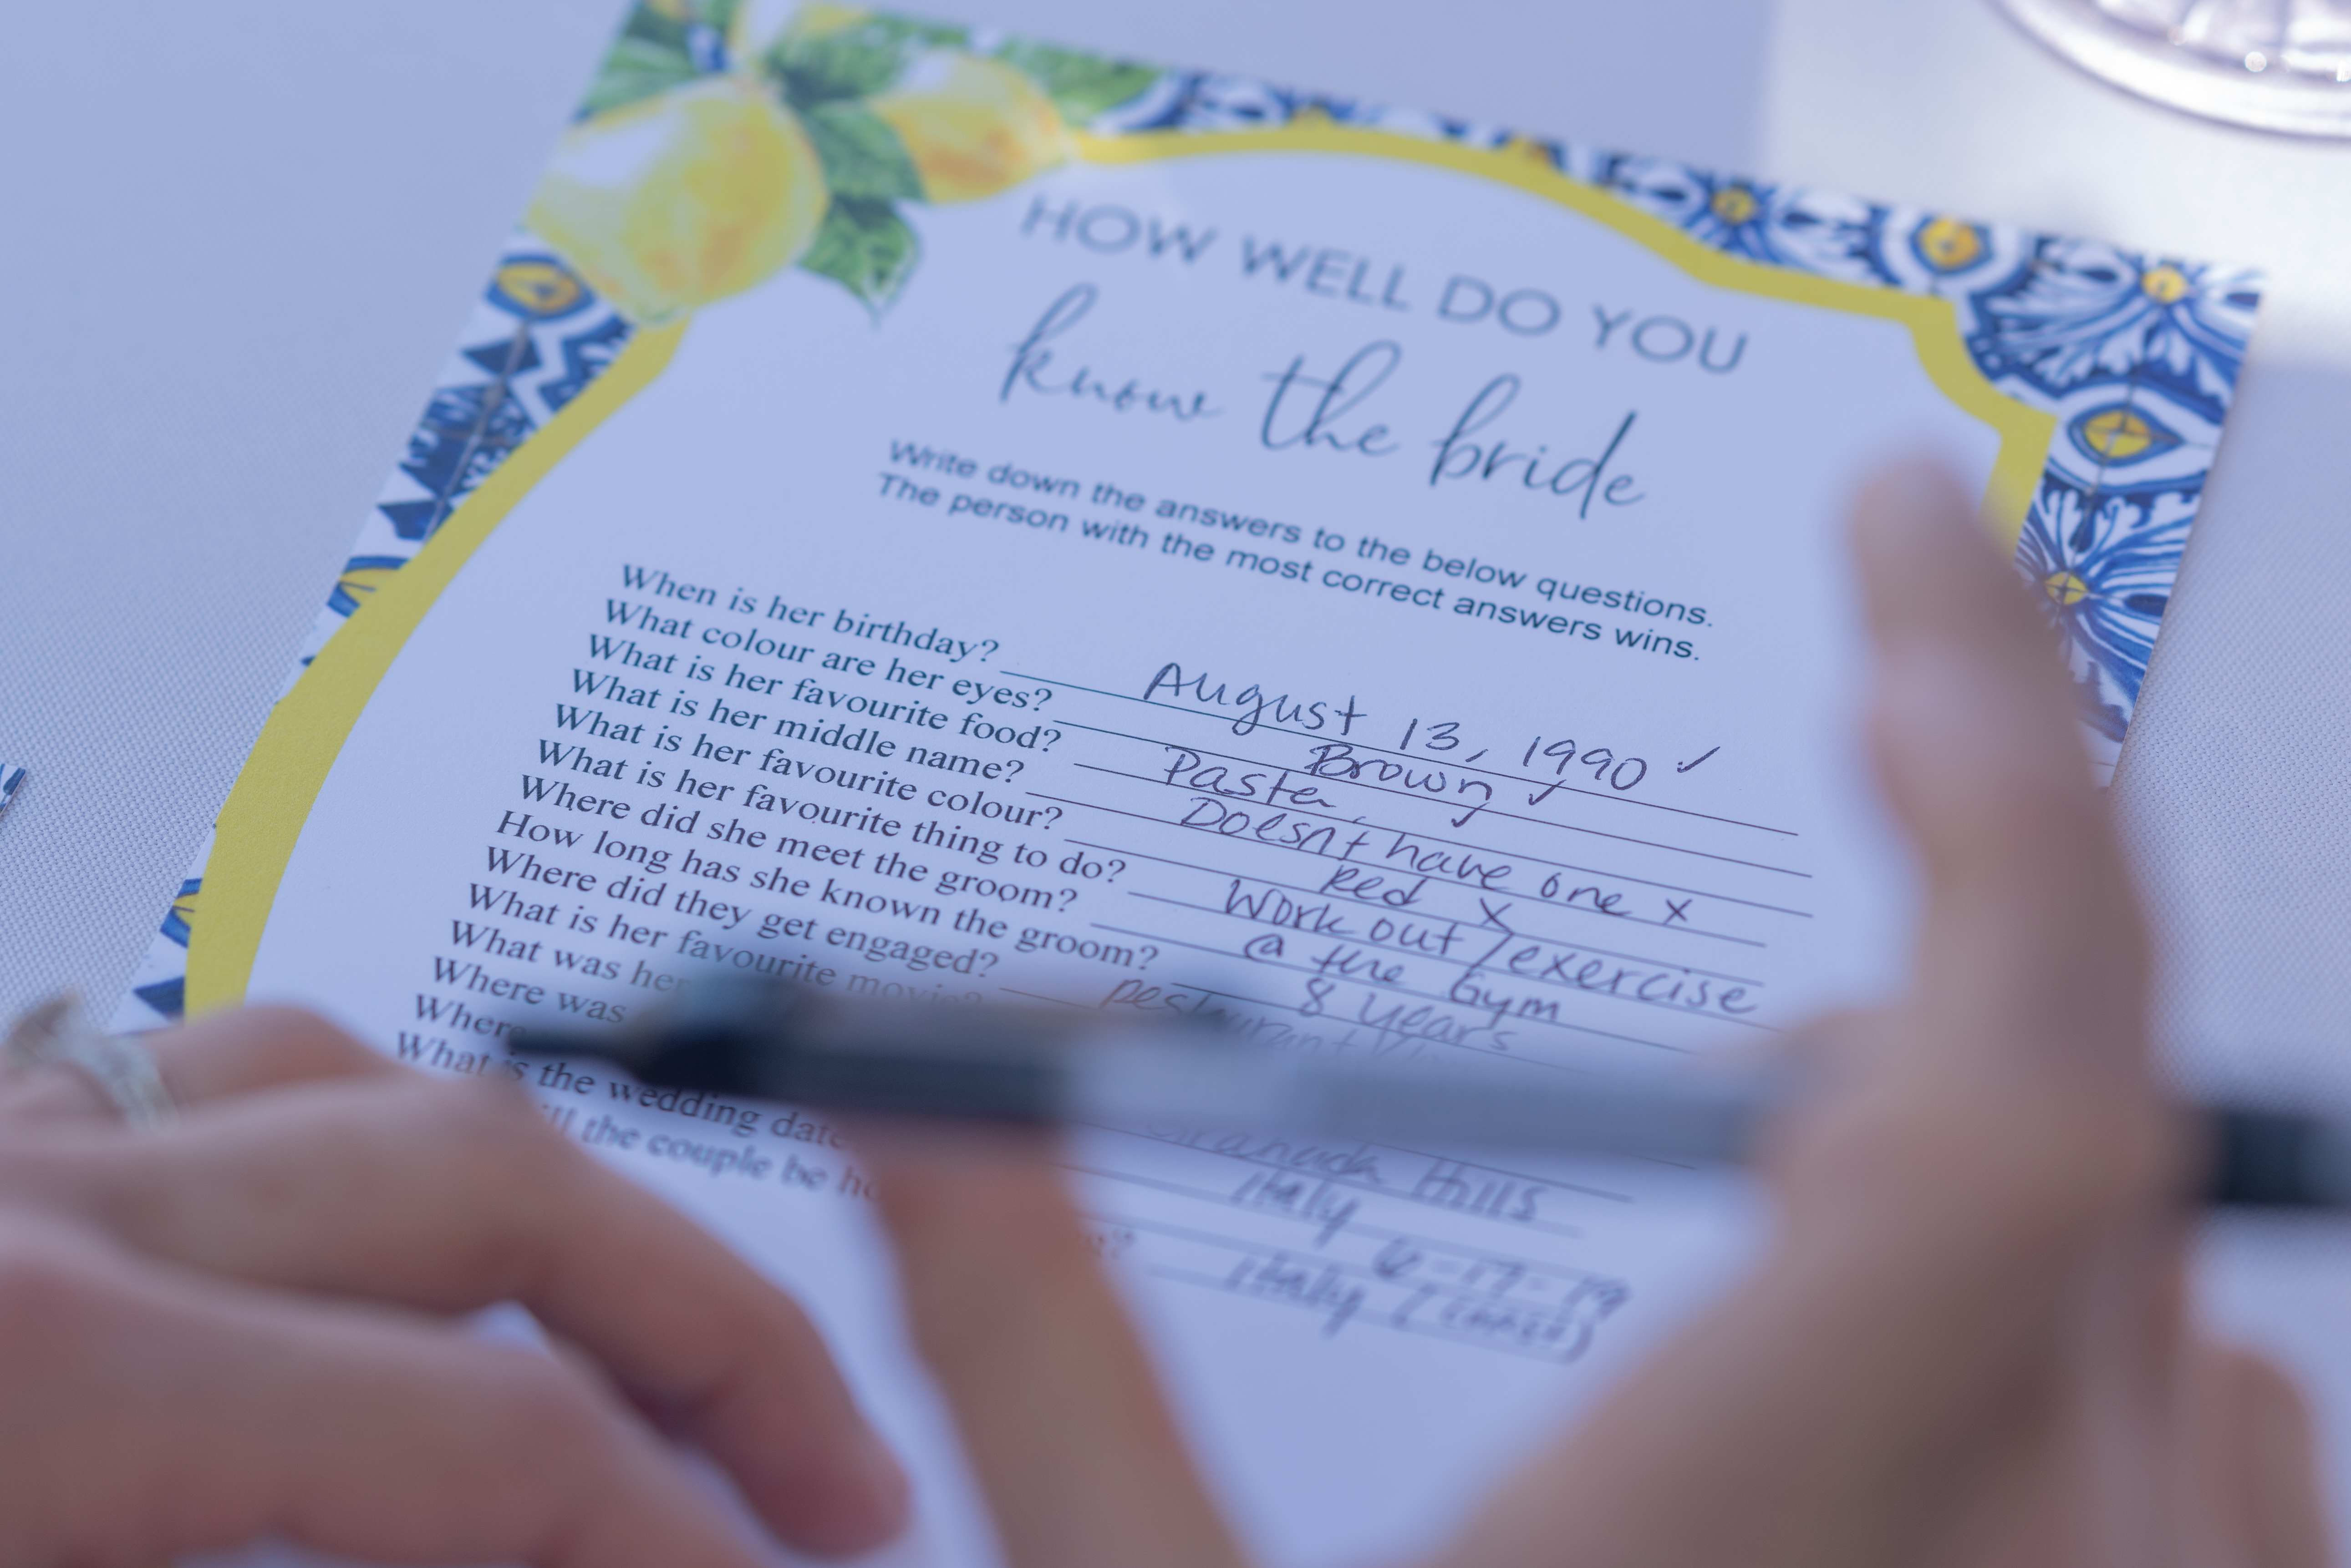 HOW WELL DO YOU
know the bride
Write down the answers to the below questions.
The person with the most correct answers wins.
When is her birthday? August 13, 1990 ✓
What colour are her eyes? Brown ✓
What is her favourite food? Pasta
What is her middle name? Doesn't have one x
What is her favourite colour? Red x
What is her favourite thing to do? Work out / exercise
Where did she meet the groom? @ the Gym
How long has she known the groom? 8 years
Where did they get engaged? restaurant
What is her favourite movie?
What was her
Where was Granada Hills
Where Italy
What is the wedding date 6-17-19
ill the couple be Italy